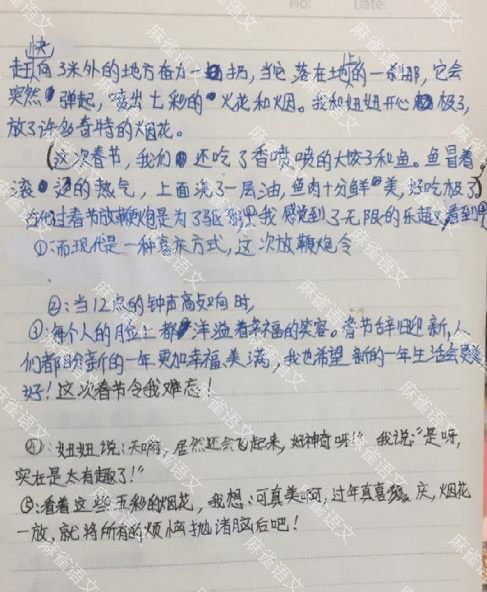 No: Date:
快
赶向3米外的地方奋力一扔，当它落在地上的一刹那，它会
突然弹起，喷出七彩的火花和烟。我和妞妞开心极了，
放了许多奇特的烟花。
（这次春节，我们还吃了香喷喷的大饺子和鱼。鱼冒着
滚烫的热气，上面浇了一层油，鱼肉十分鲜美，好吃极了）
古代过春节放鞭炮是为了驱邪 我感觉到了无限的乐趣
①：而现代是一种喜庆方式，这次放鞭炮令
②：当12点的钟声高处响时，
③：每个人的脸上都洋溢着幸福的笑容。春节辞旧迎新，人
们都盼新的一年更加幸福美满，我也希望新的一年生活会更
好！这次春节令我难忘！
④：妞妞说：天啊，居然还会飞起来，好神奇呀！”我说：“是呀，
实在是太有趣了！”
⑤：看着这些五彩的烟花，我想：可真美啊，过年真喜庆，烟花
一放，就将所有的烦恼抛诸脑后吧！
麻雀语文